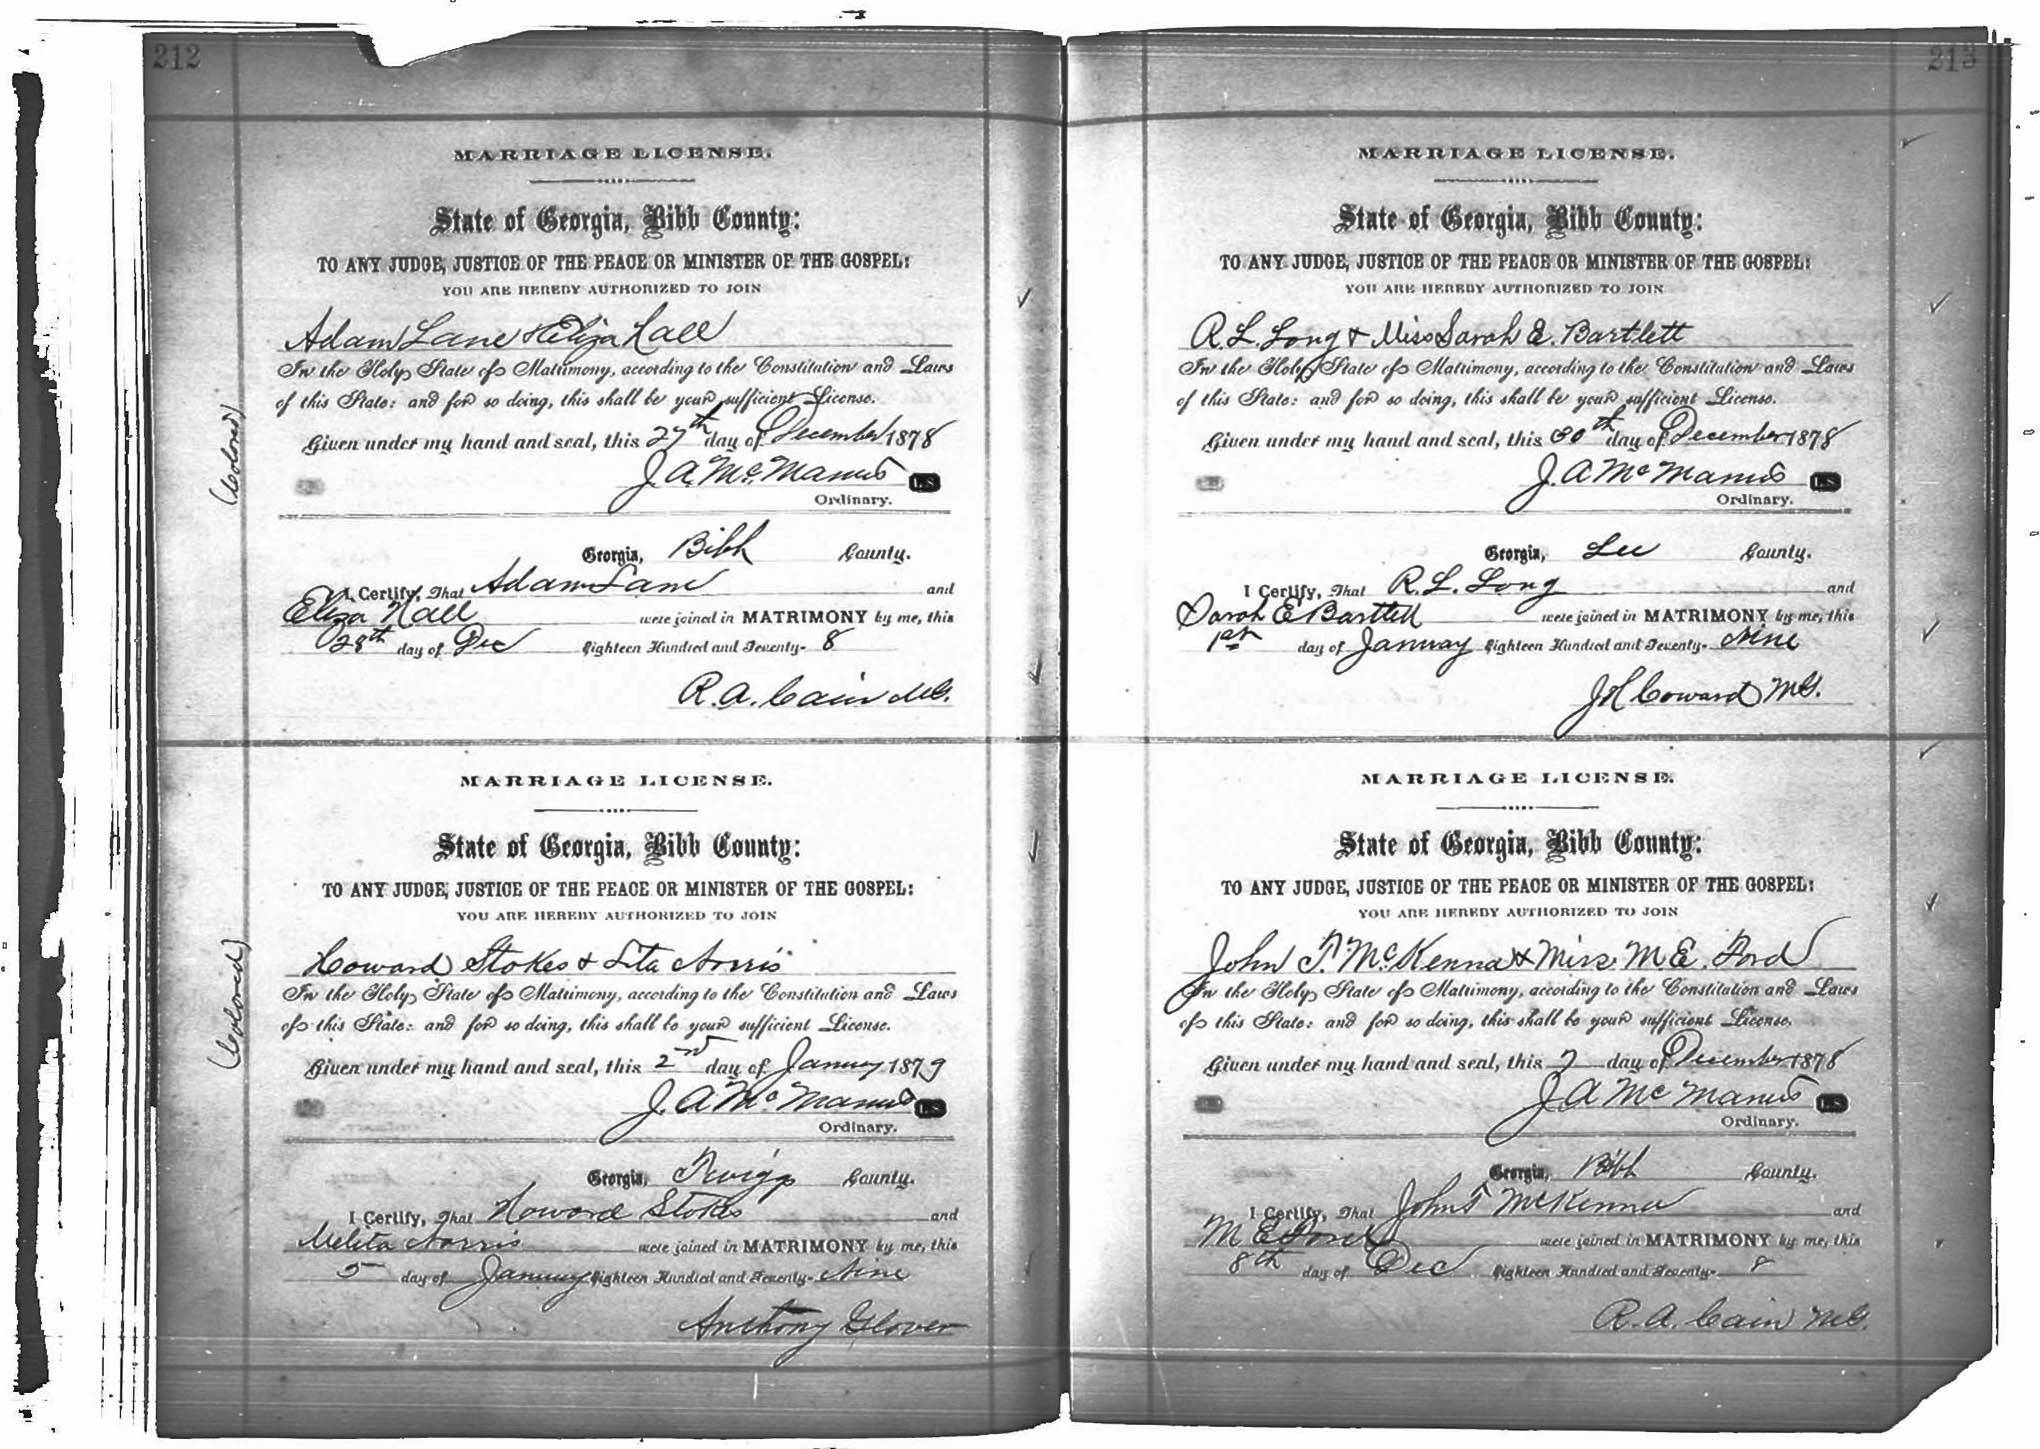 212
MARRIAGE LICENSE.
State of Georgia, Bibb County:
TO ANY JUDGE, JUSTICE OF THE PEACE OR MINISTER OF THE GOSPEL:
YOU ARE HEREBY AUTHORIZED TO JOIN
Adam Lane & Eliza Hall
In the Holy State of Matrimony, according to the Constitution and Laws
of this State: and for so doing, this shall be your sufficient License.
Given under my hand and seal, this 27th day of December 1878
J. A. McManus L.S.
Ordinary.
(Colored)
Georgia, Bibb County.
I Certify, That Adam Lane and
Eliza Hall were joined in MATRIMONY by me, this
28th day of Dec Eighteen Hundred and Seventy- 8
R. A. Cain M.G.
MARRIAGE LICENSE.
State of Georgia, Bibb County:
TO ANY JUDGE, JUSTICE OF THE PEACE OR MINISTER OF THE GOSPEL:
YOU ARE HEREBY AUTHORIZED TO JOIN
Howard Stokes & Lita Norris
In the Holy State of Matrimony, according to the Constitution and Laws
of this State: and for so doing, this shall be your sufficient License.
Given under my hand and seal, this 2nd day of January 1879
J. A. McManus L.S.
Ordinary.
(Colored)
Georgia, Twiggs County.
I Certify, That Howard Stokes and
Melita Norris were joined in MATRIMONY by me, this
5 day of January Eighteen Hundred and Seventy- Nine
Anthony Glover
213
MARRIAGE LICENSE.
State of Georgia, Bibb County:
TO ANY JUDGE, JUSTICE OF THE PEACE OR MINISTER OF THE GOSPEL:
YOU ARE HEREBY AUTHORIZED TO JOIN
R. L. Long & Miss Sarah E. Bartlett
In the Holy State of Matrimony, according to the Constitution and Laws
of this State: and for so doing, this shall be your sufficient License.
Given under my hand and seal, this 30th day of December 1878
J. A McManus L.S.
Ordinary.
Georgia, Lee County.
I Certify, That R. L. Long and
Sarah E Bartlett were joined in MATRIMONY by me, this
1st day of January Eighteen Hundred and Seventy- Nine
J H Coward M.G.
MARRIAGE LICENSE.
State of Georgia, Bibb County:
TO ANY JUDGE, JUSTICE OF THE PEACE OR MINISTER OF THE GOSPEL:
YOU ARE HEREBY AUTHORIZED TO JOIN
John T. McKenna & Miss M. E. Ford
In the Holy State of Matrimony, according to the Constitution and Laws
of this State: and for so doing, this shall be your sufficient License.
Given under my hand and seal, this 7 day of December 1878
J A McManus L.S.
Ordinary.
Georgia, Bibb County.
I Certify, That John T McKenna and
M E Ford were joined in MATRIMONY by me, this
8th day of Dec Eighteen Hundred and Seventy- 8
R. A. Cain M.G.